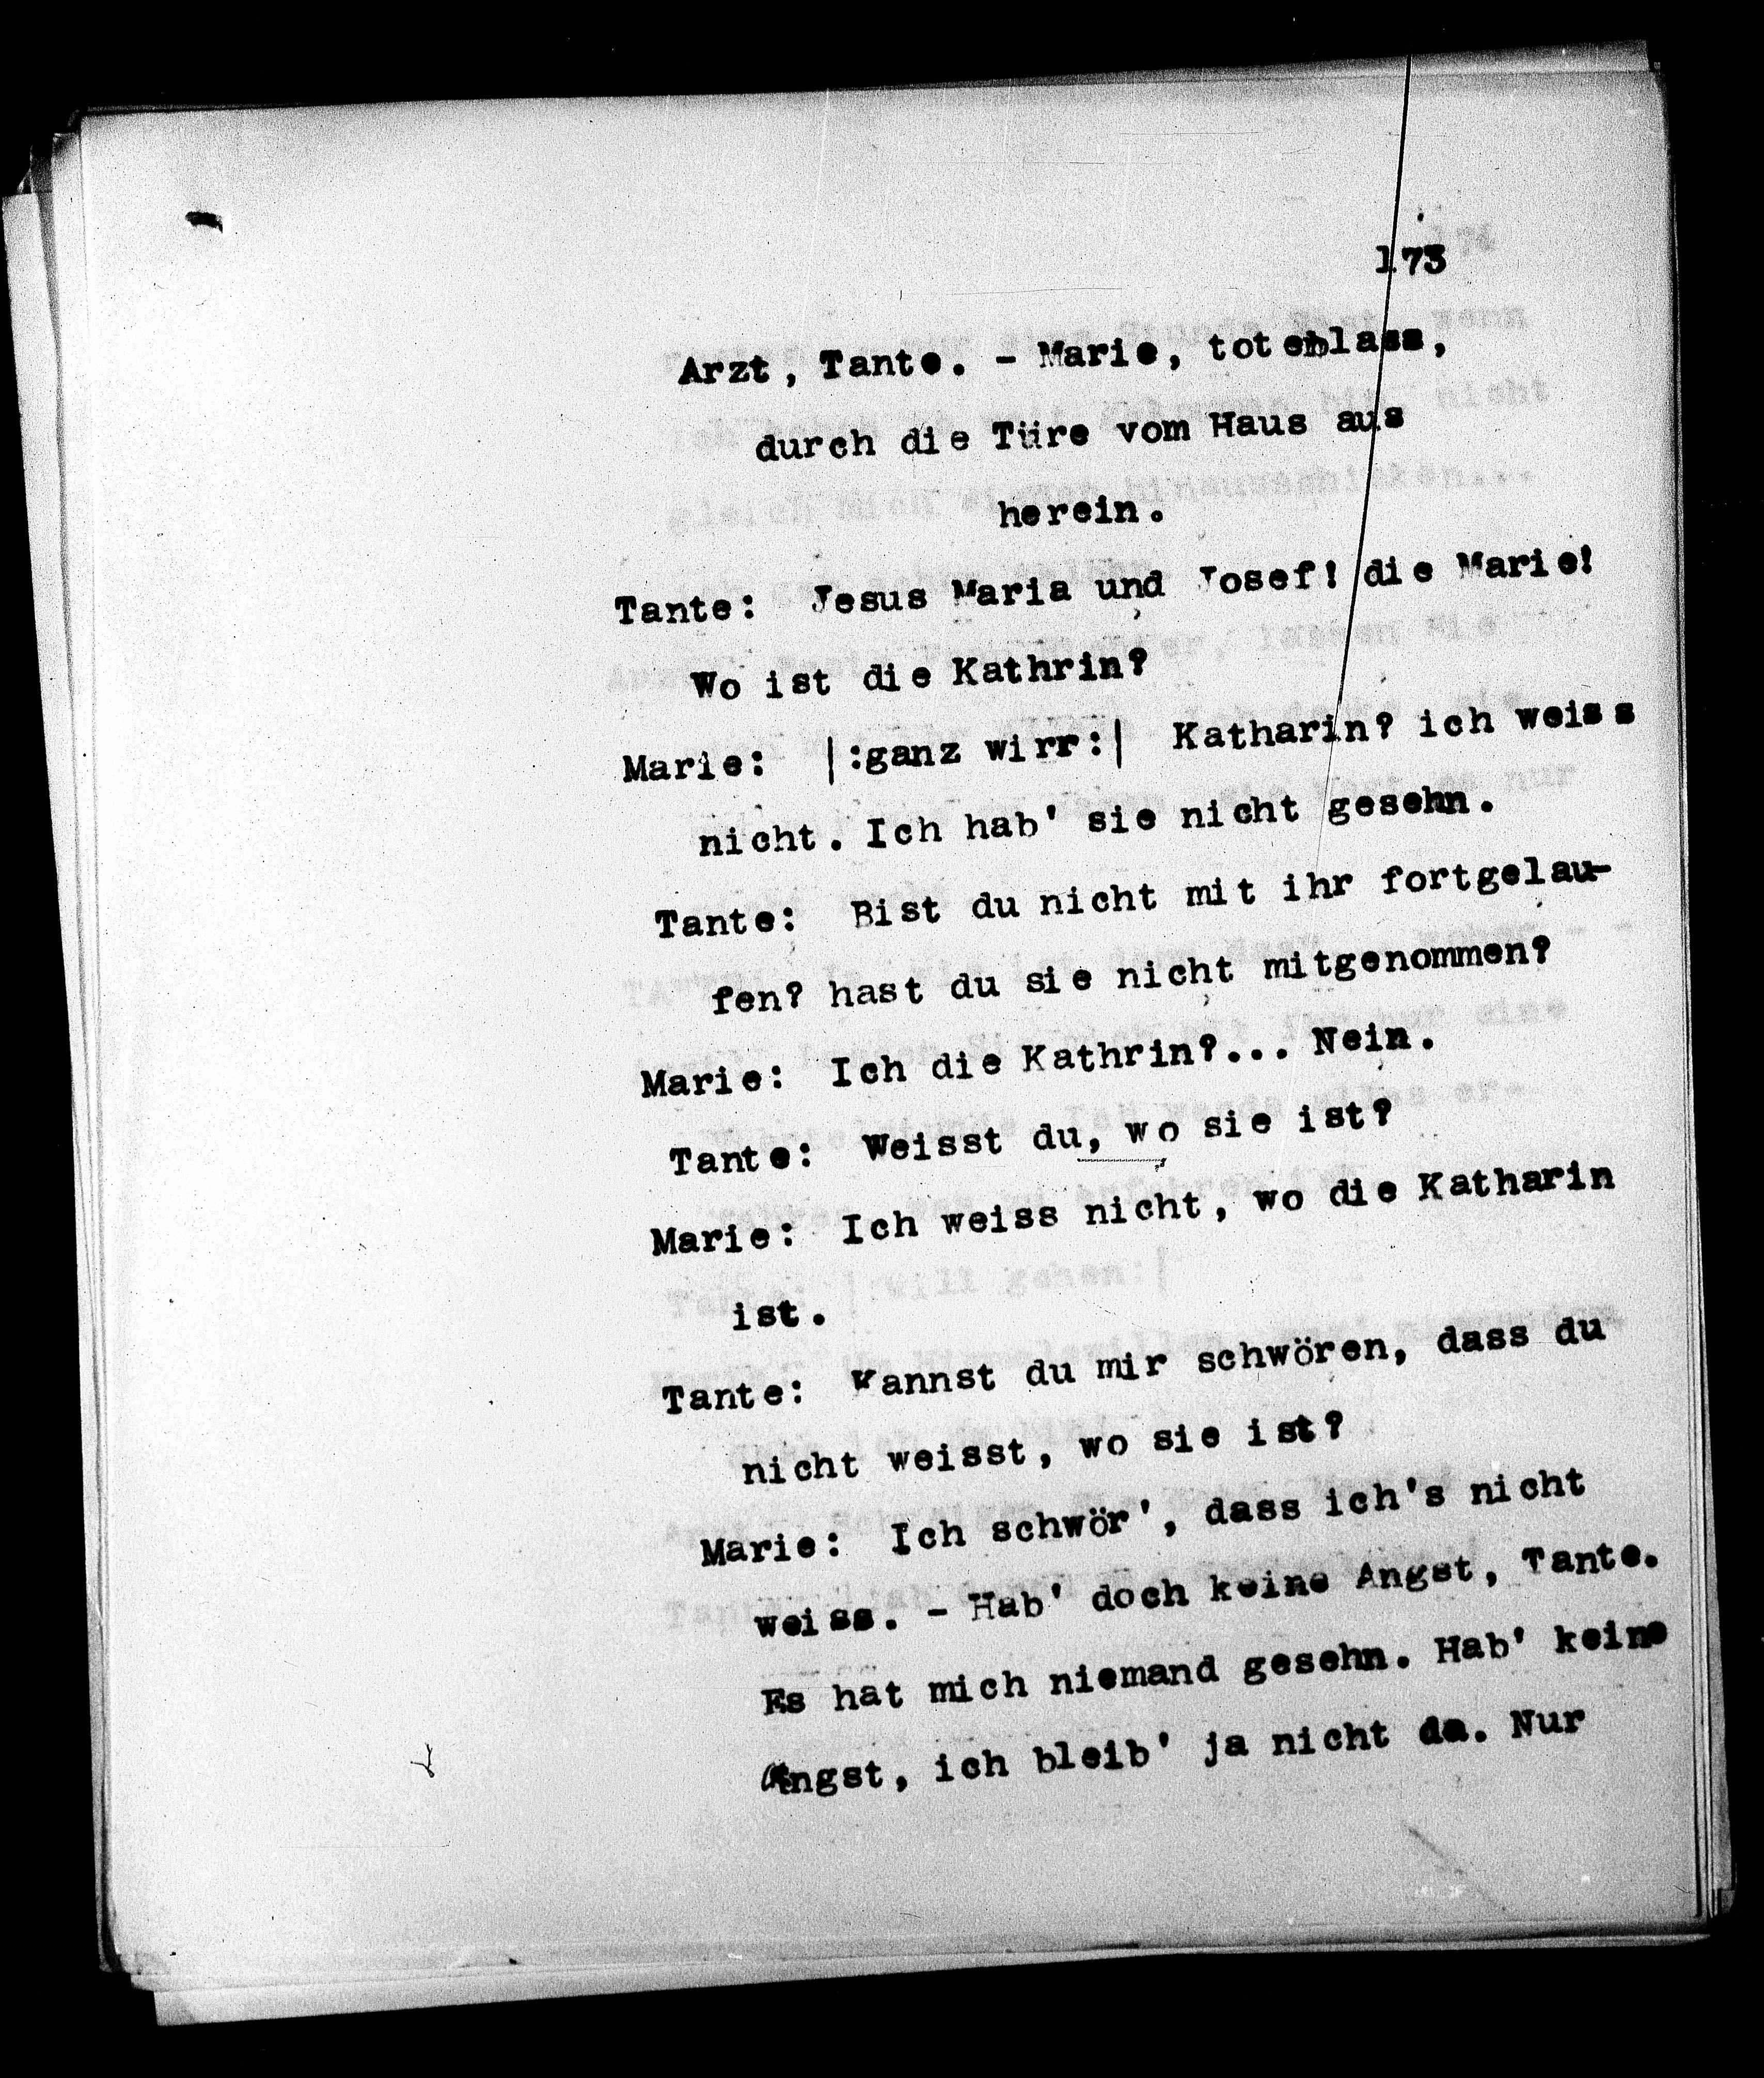 173
Arzt, Tante. - Marie, totenblass,
durch die Türe vom Haus aus
herein.
Tante: Jesus Maria und Josef! die Marie!
Wo ist die Kathrin?
Marie: |:ganz wirr:| Katharin? ich weiss
nicht. Ich hab' sie nicht gesehn.
Tante: Bist du nicht mit ihr fortgelau-
fen? hast du sie nicht mitgenommen?
Marie: Ich die Kathrin?... Nein.
Tante: Weisst du, wo sie ist?
Marie: Ich weiss nicht, wo die Katharin
ist.
Tante: Kannst du mir schwören, dass du
nicht weisst, wo sie ist?
Marie: Ich schwör', dass ich's nicht
weiss. - Hab' doch keine Angst, Tante.
Es hat mich niemand gesehn. Hab' keine
Angst, ich bleib' ja nicht da. Nur